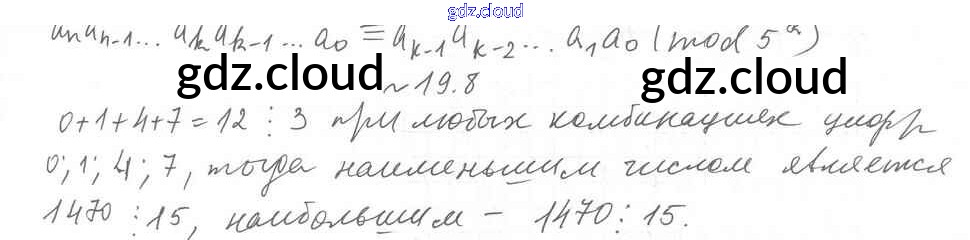 gdz.cloud
aₙaₙ₋₁... aₖaₖ₋₁... a₀ ≡ aₖ₋₁aₖ₋₂... a₁a₀ (mod 5ᵃ)
gdz.cloud gdz.cloud
~ 19.8
0+1+4+7=12 ⋮ 3 при любых комбинациях цифр
0; 1; 4; 7, тогда наименьшим числом является
1470 ⋮ 15, наибольшим – 1470 ⋮ 15.